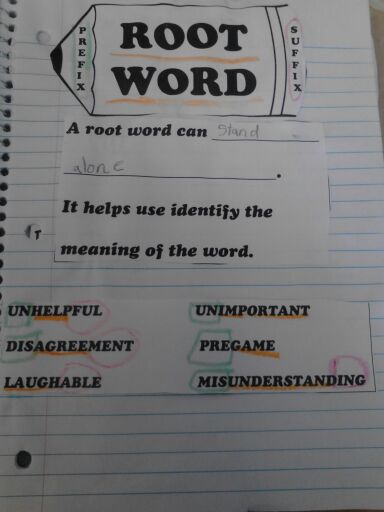 PREFIX
ROOT
WORD
SUFFIX
A root word can stand
alone.
It helps use identify the
meaning of the word.
UNHELPFUL UNIMPORTANT
DISAGREEMENT PREGAME
LAUGHABLE MISUNDERSTANDING